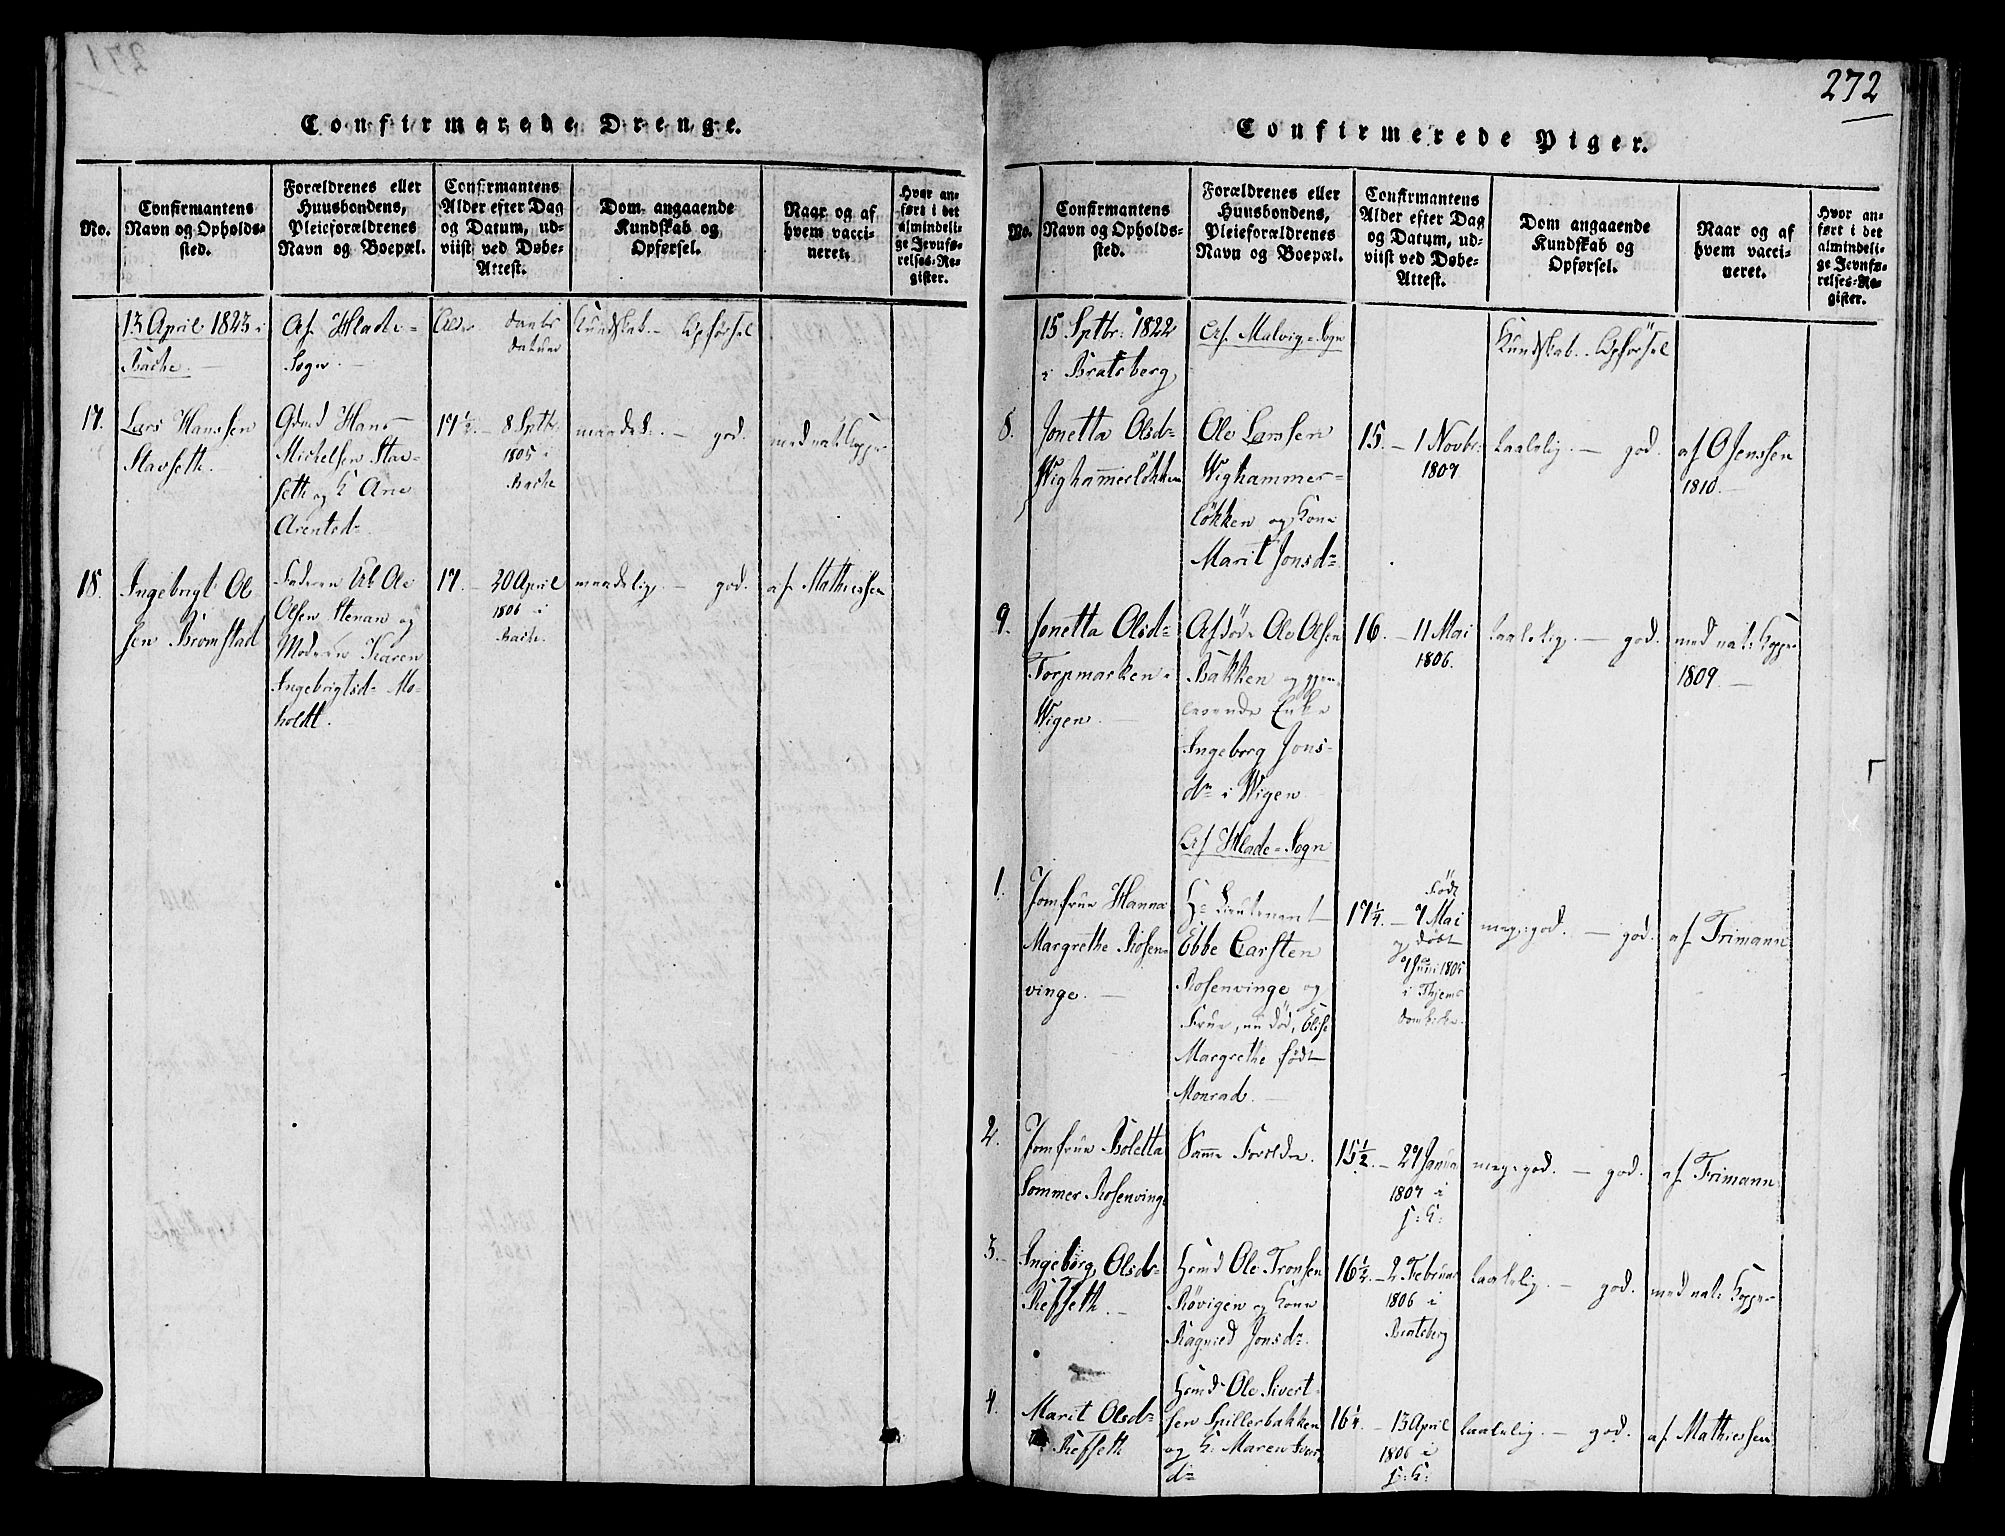 271
Confirmerede Drenge.
No.
Confirmantens
Navn og Opholds-
sted.
Forældrenes eller
Huusbondens,
Pleieforældrenes
Navn og Boepæl.
Confirmantens
Alder efter Dag
og Datum, ud-
viist ved Døbe-
Attest.
Dom angaaende
Kundskab og
Opførsel.
Naar og af
hvem vacci-
neret.
Hvor an-
ført i det
almindeli-
ge Jevnfø-
relses-Re-
gister.
13 April 1823 i
Bache.
Af Hlade-
Sogn.
Alder
datum
Kundskab. Opførsel
17.
Lars Hanssen
Stavseth.
Gdmd Hans
Michelsen Stav-
seth og K Ane
Arentsd=
17½ - 8 Sptbr.
1805 i
Bache
maadel: - god.
med nat: Kopper
18.
Ingebrigt Ol
sen Bromstad
Faderen Uk Ole
Olsen Stenan og
Moderen Karen
Ingebrigtsd= Mo-
holdt.
17 - 20 April
1806 i
Bache.
maadelig - god.
af Mathiessen
272
Confirmerede Piger.
No.
Confirmantens
Navn og Opholds-
sted.
Forældrenes eller
Huusbondens,
Pleieforældrenes
Navn og Boepæl.
Confirmantens
Alder efter Dag
og Datum, ud-
viist ved Døbe-
Attest.
Dom angaaende
Kundskab og
Opførsel.
Naar og af
hvem vacci-
neret.
Hvor an-
ført i det
almindeli-
ge Jevnfø-
relses-Re-
gister.
15 Sptbr. 1822
i Bratsberg
Af Malvig-Sogn
Kundskab. Opførsel
8.
Jonetta Olsd=
Wighammerløkken
Ole Larssen
Wighammer-
løkken og Kone
Marit Jonsd=
15. - 1 Novbr.
1807.
taalelig. - god.
af O Jenssen
1810.
9.
Jonetta Olsd=
Torpmarken i
Wigen.
Afdøde Ole Olsen
Bakken og gjen-
levende Enke
Ingeborg Jons-
dr i Wigen
16. - 11 Mai
1806.
taalelig. - god.
med nat: Kopper
1809.
Af Hlade-Sogn
1.
Jomfrue Hanna
Margrethe Rosen-
vinge.
Hr Lieutenant
Ebbe Carsten
Rosenvinge og
Frue, nu død, Elise
Margrethe født
Monrad.
17¼ - Født
7 Mai
og døbt
7 Juni 1805
i Thjems
Domkirke.
meg: god. - god.
af Trimann
2.
Jomfrue Boletta
Sommer Rosenvinge
Samme Forældre.
15½. - 27 Janua
1807 i
S: K:
meg: god. - god.
af Trimann
3.
Ingeborg Olsd=
Refseth.
Hsmd Ole Tronsen
Røvigen og Kone
Ragnied Jonsd=.
16¼. - 2 Februar
1806 i
Bratsberg
taalelig. - god.
med nat: Kopper
4.
Marit Olsd=
Refseth
Hsmd Ole Sivert-
sen Spillerbakken
og K: Maren Iver
d=
16¼. - 13 April
1806 i
S: K:
taalelig. - god.
af Mathiessen